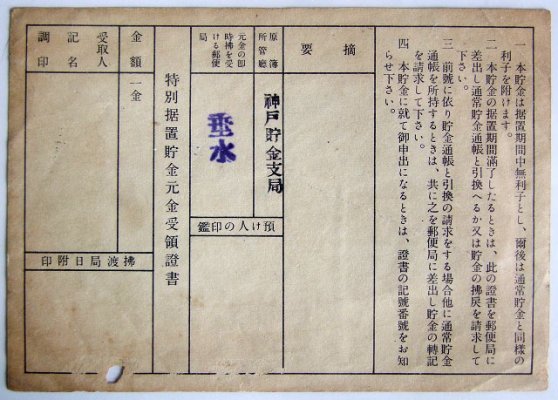 一 本貯金は据置期間中無利子とし、爾後は通常貯金と同樣の
利子を附けます。
二 本貯金の据置期間滿了したるときは、此の證書を郵便局に
差出し通常貯金通帳と引換へるか又は貯金の拂戻を請求して
下さい。
三 前號に依り貯金通帳と引換の請求をする場合他に通常貯金
通帳を所持するときは、共に之を郵便局に差出し貯金の轉記
を請求して下さい。
四 本貯金に就て御申出になるときは、證書の記號番號をお知
らせ下さい。
摘要
原簿
所管廳
神戸貯金支局
元金の即
時拂を受
ける郵便
局
垂水
預け人の印鑑
特別据置貯金元金受領證書
金額
一金
受取人
記名
調印
拂渡局日附印